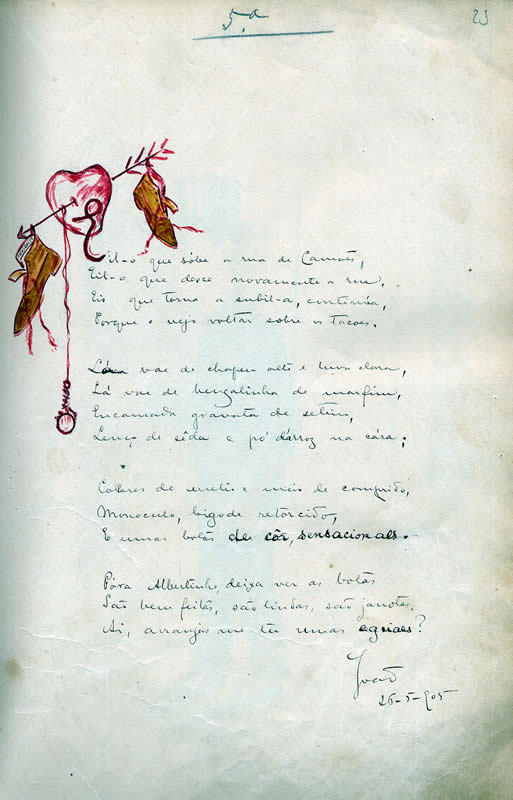 5.ª
23
Eil-o que sóbe a rua de Camões,
Eil-o que desce novamente a rua,
Eis que torna a subil-a, continúa,
Porque o vejo voltar sobre os tacões.
Lá vae de chapeu alto e luva clara,
Lá vae de bengalinha de marfim,
Encarnada gravata de setim,
Lenço de sêda e pó d'arroz na cára;
Colares de metro e meio de comprido,
Monoculo, bigode retorcido,
E umas botas de côr, sensacionaes.
Pára Albertinho, deixa ver as botas
São bem feitas, são lindas, são janotas,
Ai, arranjas-me tu umas eguaes?
João
26-5-905